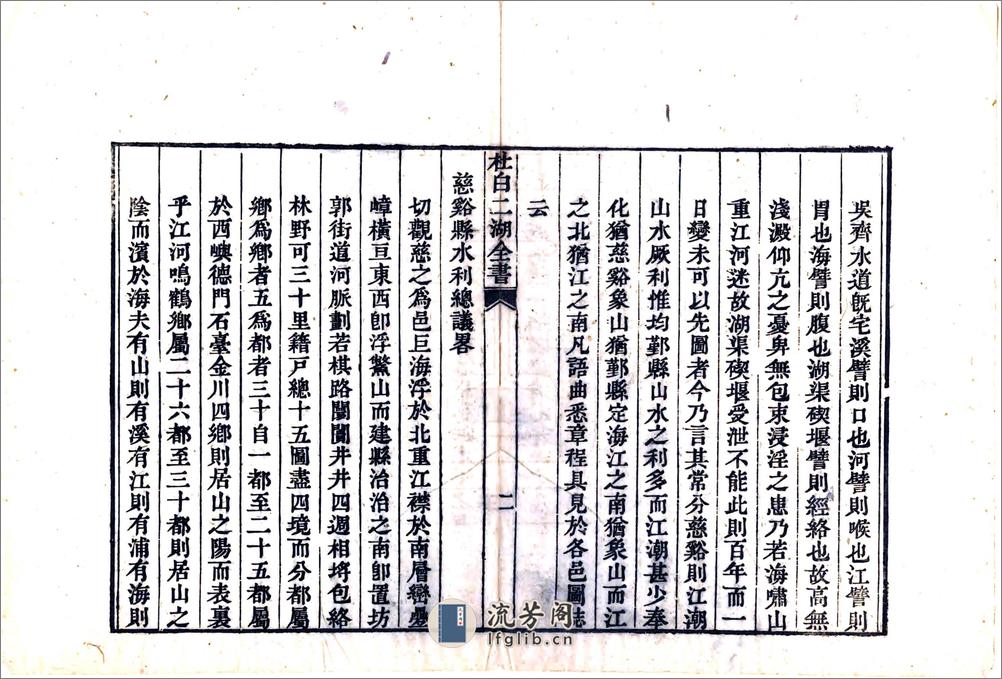 吳齊水道旣宅溪譬則口也河譬則喉也江譬則
胃也海譬則腹也湖渠碶堰譬則經絡也故高無
淺澱仰亢之憂卑無包束浸淫之患乃若海嘯山
重江河迷故湖渠碶堰受泄不能此則百年而一
日變未可以先圖者今乃言其常分慈谿則江潮
山水厥利惟均鄞縣山水之利多而江潮甚少奉
化猶慈谿象山猶鄞縣定海江之南猶象山而江
之北猶江之南凡語曲悉章程具見於各邑圖誌
云
杜白二湖全書
二
慈谿縣水利總議畧
切觀慈之爲邑巨海浮於北重江襟於南層巒疊
嶂橫亘東西卽浮鰲山而建縣治治之南卽置坊
郭街道河脈劃若棋路闤闠井井四週相埒包絡
林野可三十里籍戸總十五圖盡四境而分都屬
鄉爲鄉者五爲都者三十自一都至二十五都屬
於西嶼德門石臺金川四鄉則居山之陽而表裏
乎江河鳴鶴鄉屬二十六都至三十都則居山之
陰而濱於海夫有山則有溪有江則有浦有海則
流芳阁
lfglib.cn